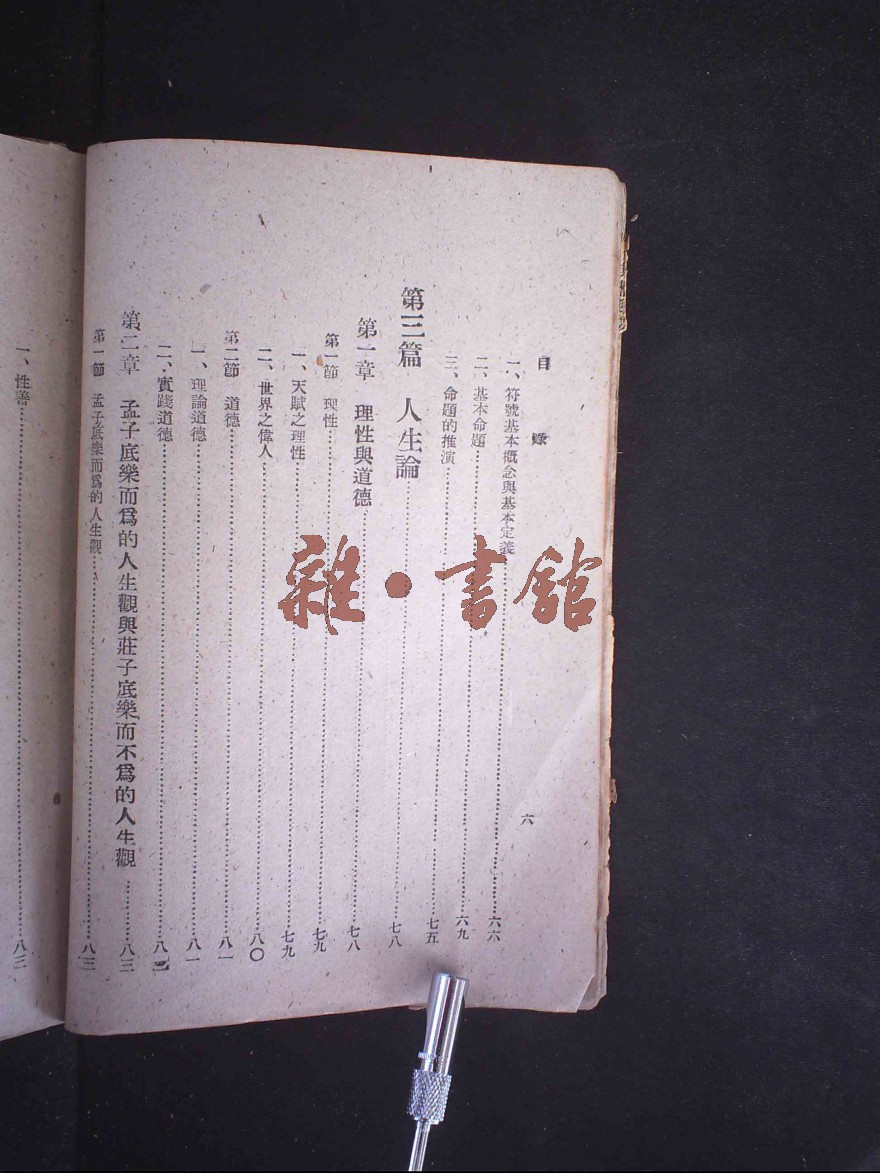 目錄
六
一、符號基本概念與基本定義……六六
二、基本命題……六九
三、命題的推演……七五
第三篇 人生論……七八
第一章 理性與道德……七八
第一節 理性……七九
一、天賦之理性……七九
二、世界之偉人……八〇
第二節 道德……八一
一、理論道德……八一
二、實踐道德……八二
第二章 孟子底樂而爲的人生觀與莊子底樂而不爲的人生觀……八三
第一節 孟子底樂而爲的人生觀……八三
一、性善……八三
雜·書館